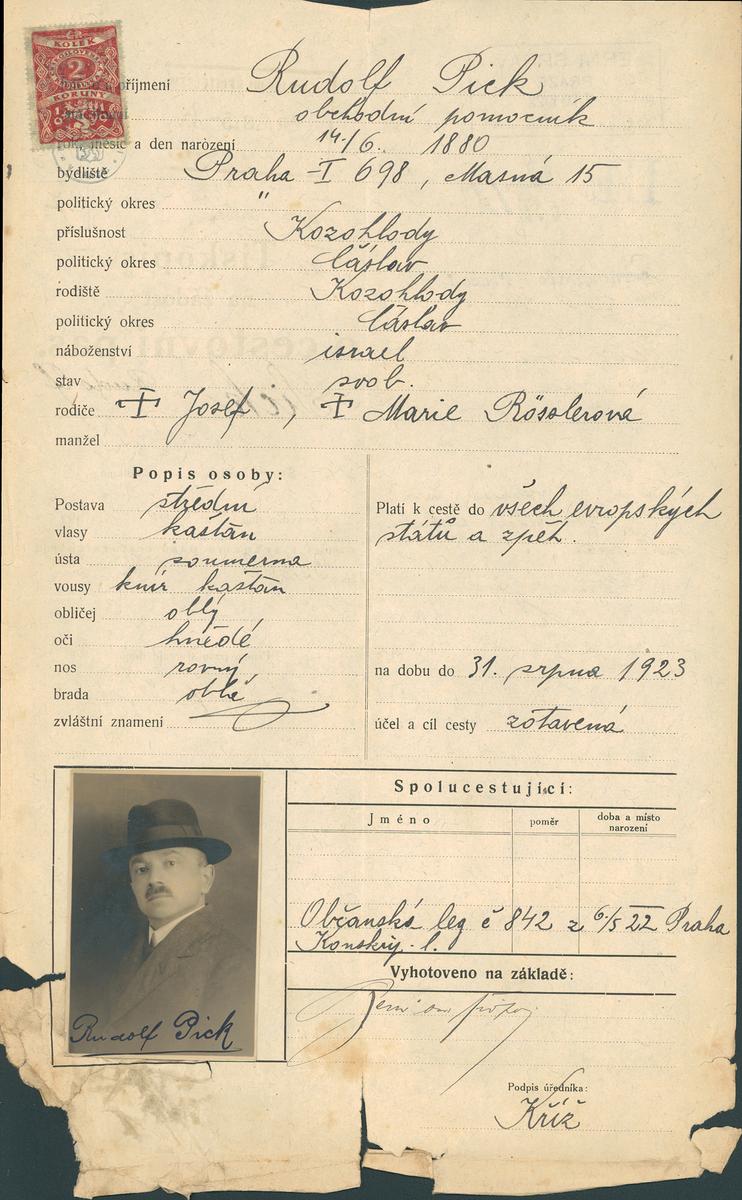 KOLEK
2
KORUNY
příjmení Rudolf Pick
obchodní pomocník
rok, měsíc a den narození 14/6. 1880
bydliště Praha-I 698, Masná 15
politický okres "
příslušnost Kozohlody
politický okres Čáslav
rodiště Kozohlody
politický okres Čáslav
náboženství israel
stav svob.
rodiče † Josef, † Marie Rösslerová
manžel
Popis osoby:
Postava střední
vlasy kaštan
ústa souměrna
vousy knír kaštan
obličej oblý
oči hnědé
nos rovný
brada oblá
zvláštní znamení
Platí k cestě do všech evropských
států a zpět.
na dobu do 31. srpna 1923
účel a cíl cesty zotavená
Spolucestující:
Jméno poměr doba a místo
narození
Občanská leg č 842 z 6/5 22 Praha
Konskrip. l.
Vyhotoveno na základě:
Rudolf Pick
Podpis úředníka:
Kříž